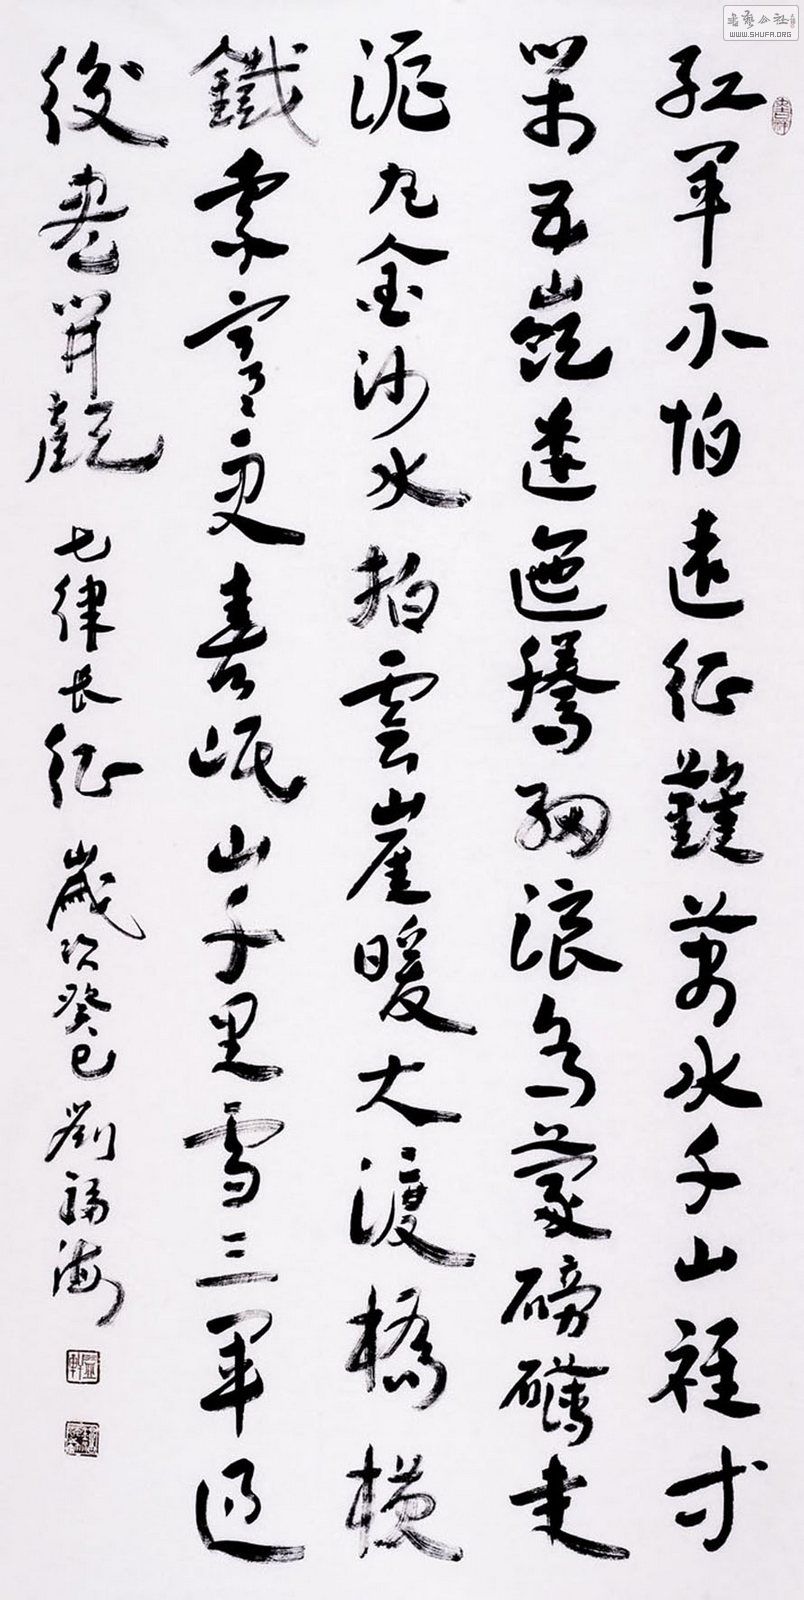 紅軍不怕遠征難萬水千山祇等
閑五嶺逶迤騰細浪烏蒙磅礴走
泥丸金沙水拍雲崖暖大渡橋橫
鐵索寒更喜岷山千里雪三軍過
後盡開顏 七律長征 歲次癸巳 劉福海
書藝公社
WWW.SHUFA.ORG